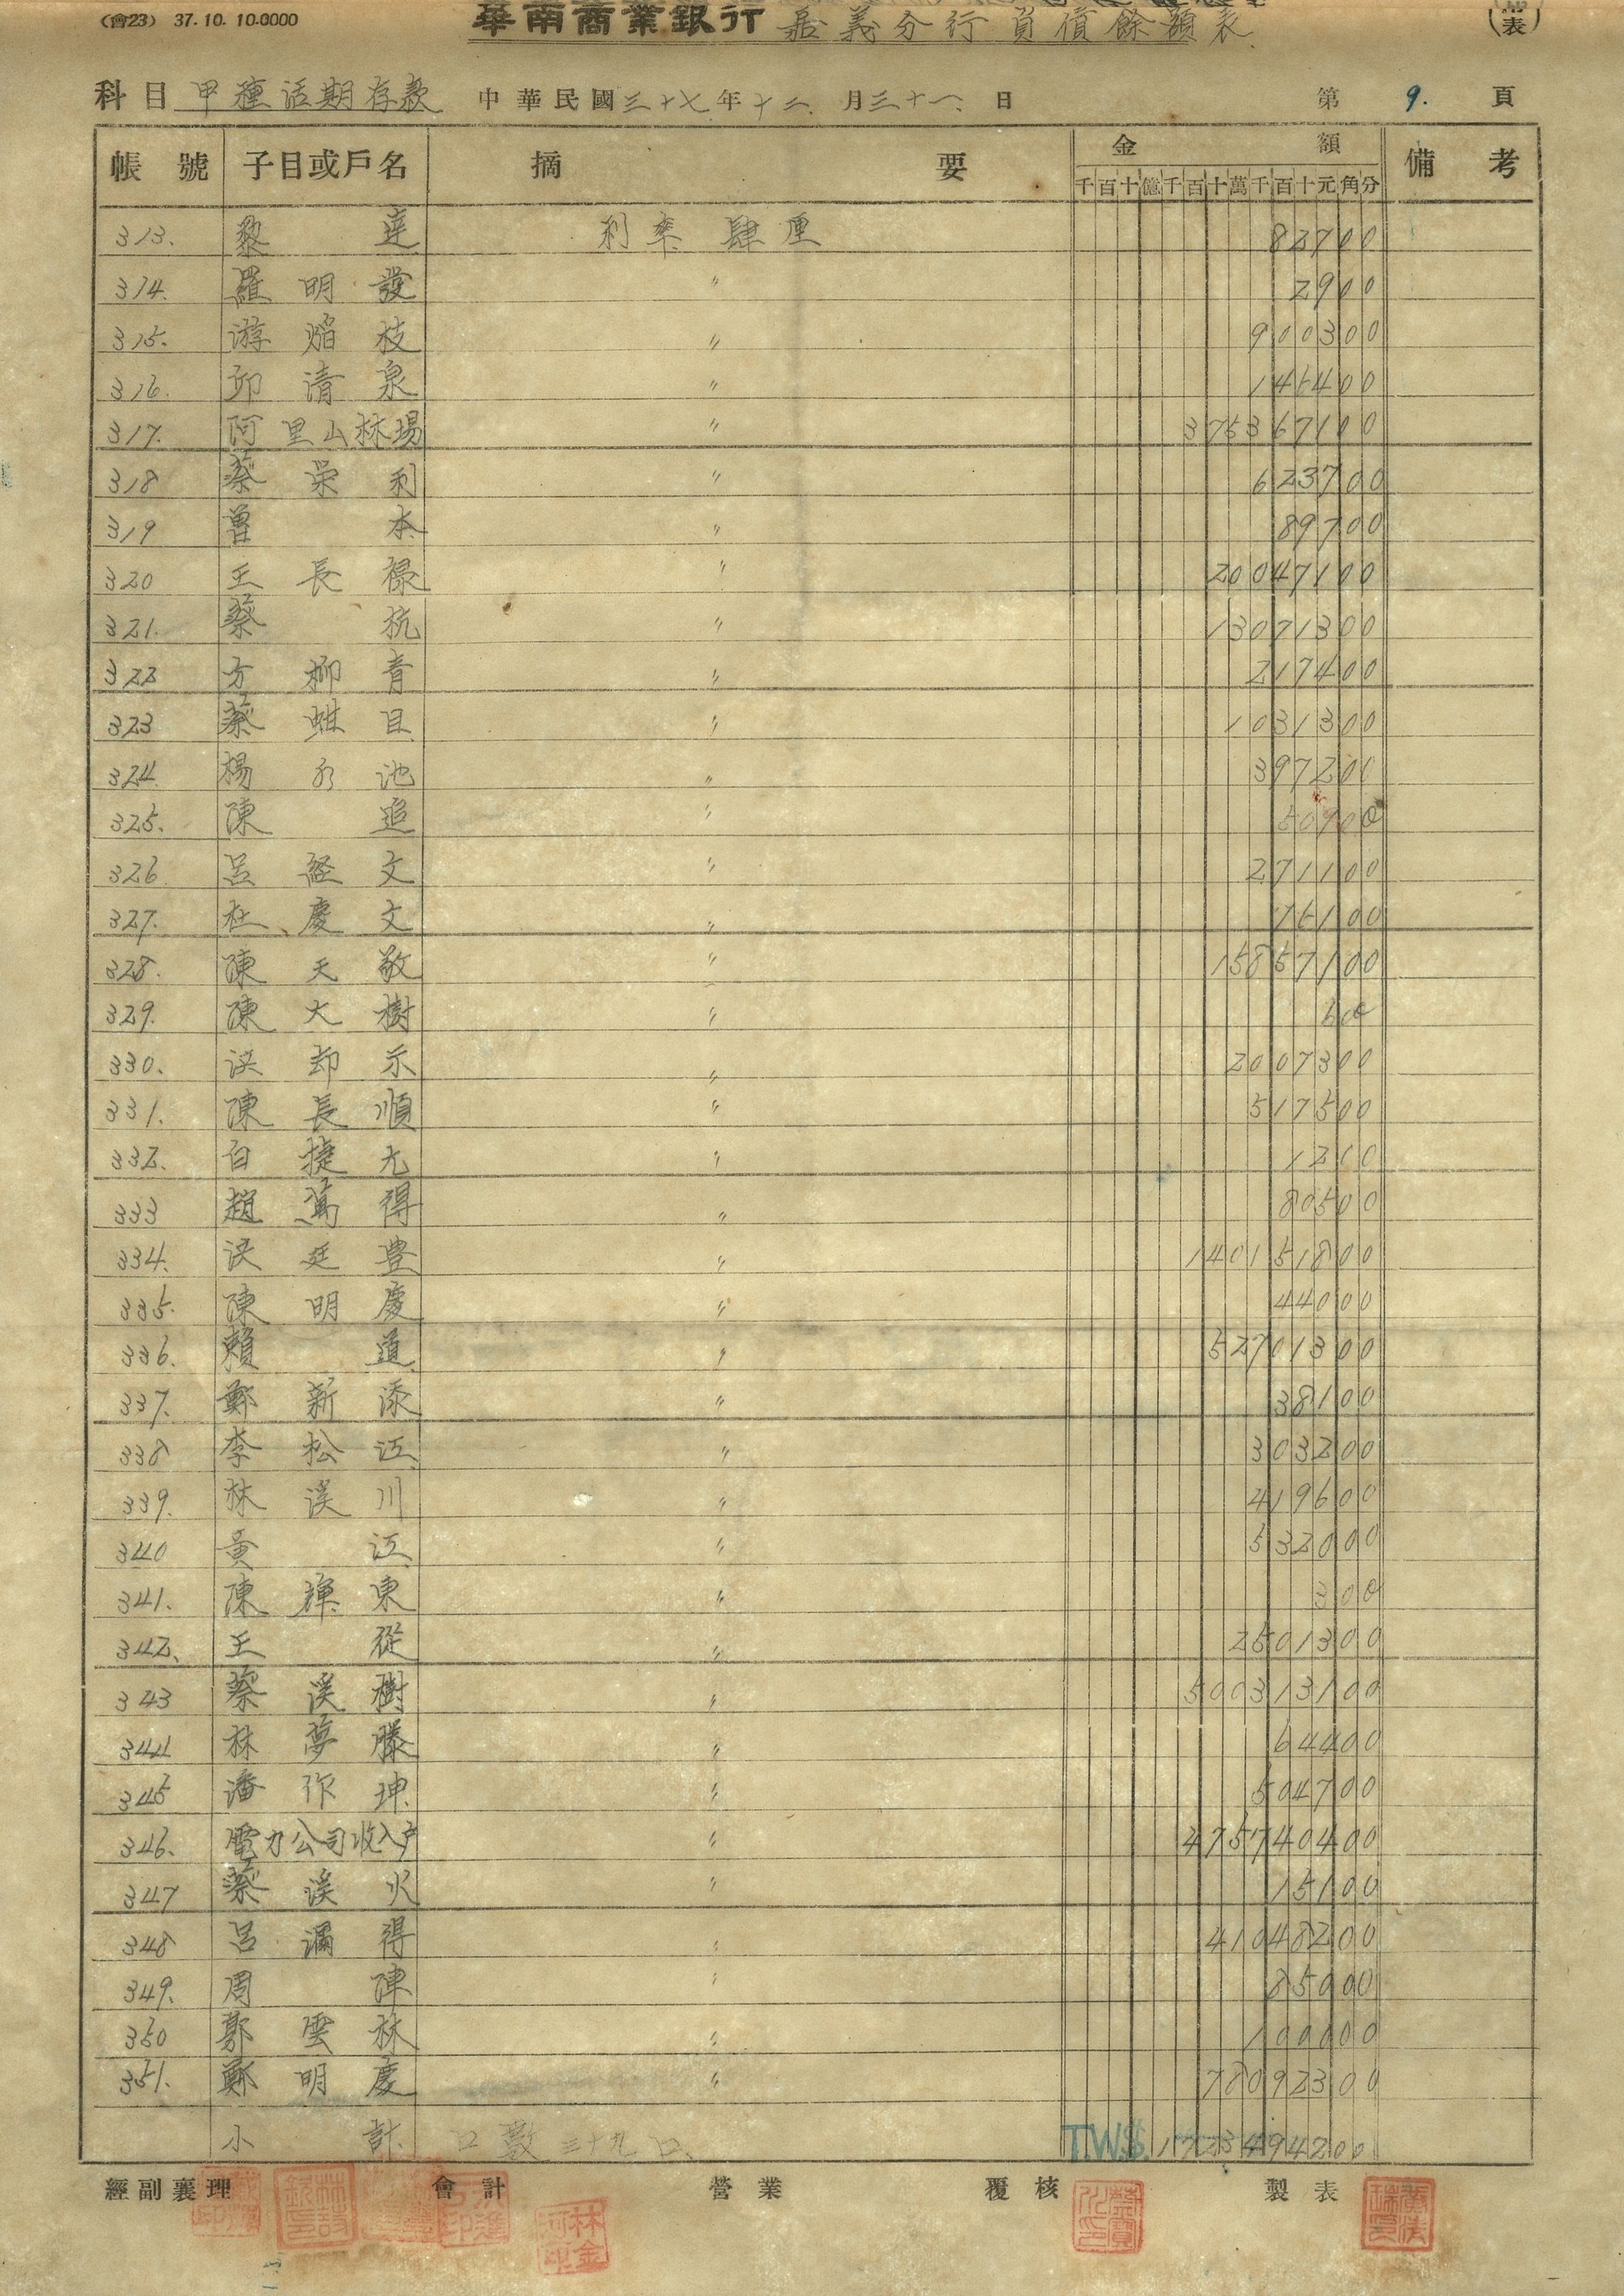 (會23) 37.10.10.0000
華南商業銀行 嘉義分行負債餘額表
(表)
科目 甲種活期存款 中華民國三十七年十二月三十一日 第9.頁
帳號 子目或戶名 摘要 金額 備考
千百十億千百十萬千百十元角分
313. 黎達 利率肆厘 82700
314. 羅明發 〃 2900
315. 游焰枝 〃 900300
316. 邱清泉 〃 145400
317. 阿里山林場 〃 375367100
318 蔡榮利 〃 623700
319 曾本 〃 89700
320 王長祿 〃 20047100
321. 蔡杭 〃 13071300
322 方柳青 〃 217400
323 蔡蚶目 〃 1031300
324. 楊水池 〃 397200
325. 陳追 〃 50900
326 呂経文 〃 271100
327. 杜慶文 〃 76100
328. 陳天敬 〃 15857100
329. 陳大樹 〃 600
330. 洪却示 〃 2007300
331. 陳長順 〃 517500
332. 白捷元 〃 1200
333 趙篤得 〃 80500
334. 洪廷豊 〃 140151800
335. 陳明慶 〃 44000
336. 賴道 〃 52701300
337. 鄭新添 〃 38100
338 李松江 〃 303200
339. 林溪川 〃 419600
340 黃江 〃 532000
341. 陳輝東 〃 300
342. 王從 〃 2501300
343 蔡溪樹 〃 500313100
344 林夢滕 〃 64400
345 潘作坤 〃 504700
346. 電力公司收入戶 〃 475740400
347 蔡溪火 〃 15100
348 呂滿得 〃 41048200
349. 周陳 〃 85000
350 郭雲林 〃 100000
351. 鄭明慶 〃 78092300
小計 口數三十九口 T.W.$. 1723494200
經副襄理 會計 營業 覆核 製表
林金河印